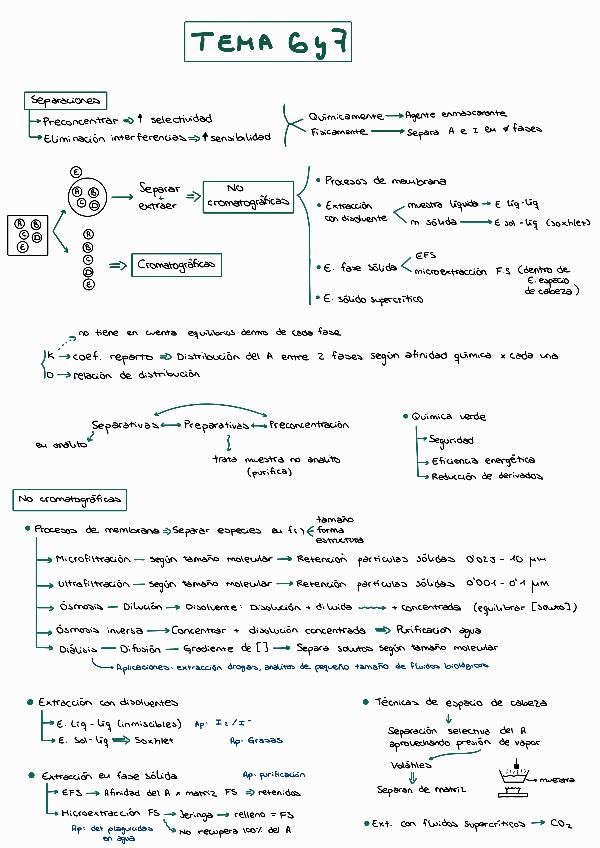 TEMA 6 y 7
Separaciones
→ Preconcentrar ⇒ ↑ selectividad
→ Eliminación interferencias ⇒ ↑ sensibilidad
Químicamente → Agente enmascarante
Físicamente → Separa A e I en ≠ fases
E
A B
C D
A B
C D
E
A
B
C
D
E
Separar
+
extraer
⇒ No
cromatográficas
⇒ Cromatográficas
• Procesos de membrana
• Extracción
con disolvente
muestra líquida → E líq-líq
m. sólida → E sol-líq (soxhlet)
• E. fase sólida
EFS
microextracción F.S (dentro de
E. espacio
de cabeza)
• E. sólido supercrítico
no tiene en cuenta equilibrios dentro de cada fase
K → coef. reparto ⇒ Distribución del A entre 2 fases según afinidad química x cada una
D → relación de distribución
Separativas ↔ Preparativas ↔ Preconcentración
en analito
trata muestra no analito
(purifica)
• Química verde
→ Seguridad
→ Eficiencia energética
→ Reducción de derivados
No cromatográficas
• Procesos de membrana ⇒ Separar especies en f()
tamaño
forma
estructura
→ Microfiltración — según tamaño molecular → Retención partículas sólidas 0'025 - 10 μm
→ Ultrafiltración — según tamaño molecular → Retención partículas sólidas 0'001 - 0'1 μm
→ Ósmosis — Dilución → Disolvente: Disolución + diluida → + concentrada (equilibrar [souto])
→ Ósmosis inversa → Concentrar + disolución concentrada ⇒ Purificación agua
→ Diálisis — Difusión — Gradiente de [] → Separa solutos según tamaño molecular
→ Aplicaciones: extracción drogas, analitos de pequeño tamaño de fluidos biológicos
• Extracción con disolventes
→ E. Líq - Líq (inmiscibles) Ap: I₂/I⁻
→ E. Sol-Líq ⇒ Soxhlet Ap: Grasas
• Extracción en fase sólida Ap: purificación
→ EFS → Afinidad del A x matriz FS ⇒ retenidos
→ Microextracción FS → Jeringa → relleno = FS
Ap: det plaguicidas
en agua
→ No recupera 100% del A
• Técnicas de espacio de cabeza
↓
Separación selectiva del A
aprovechando presión de vapor
Volátiles
⇓
Separan de matriz
→ muestra
• Ext. con fluidos supercríticos → CO₂